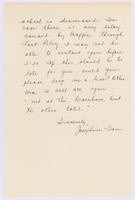 school is dismissed. In
case there is any delay
caused by traffic through
East Riley, I may not be
able to contact you before
5:30. If this should be too
late for you could you
please drop me a line? Other
wise I will see you
at the
the other later."
Sincerely,
Josephine